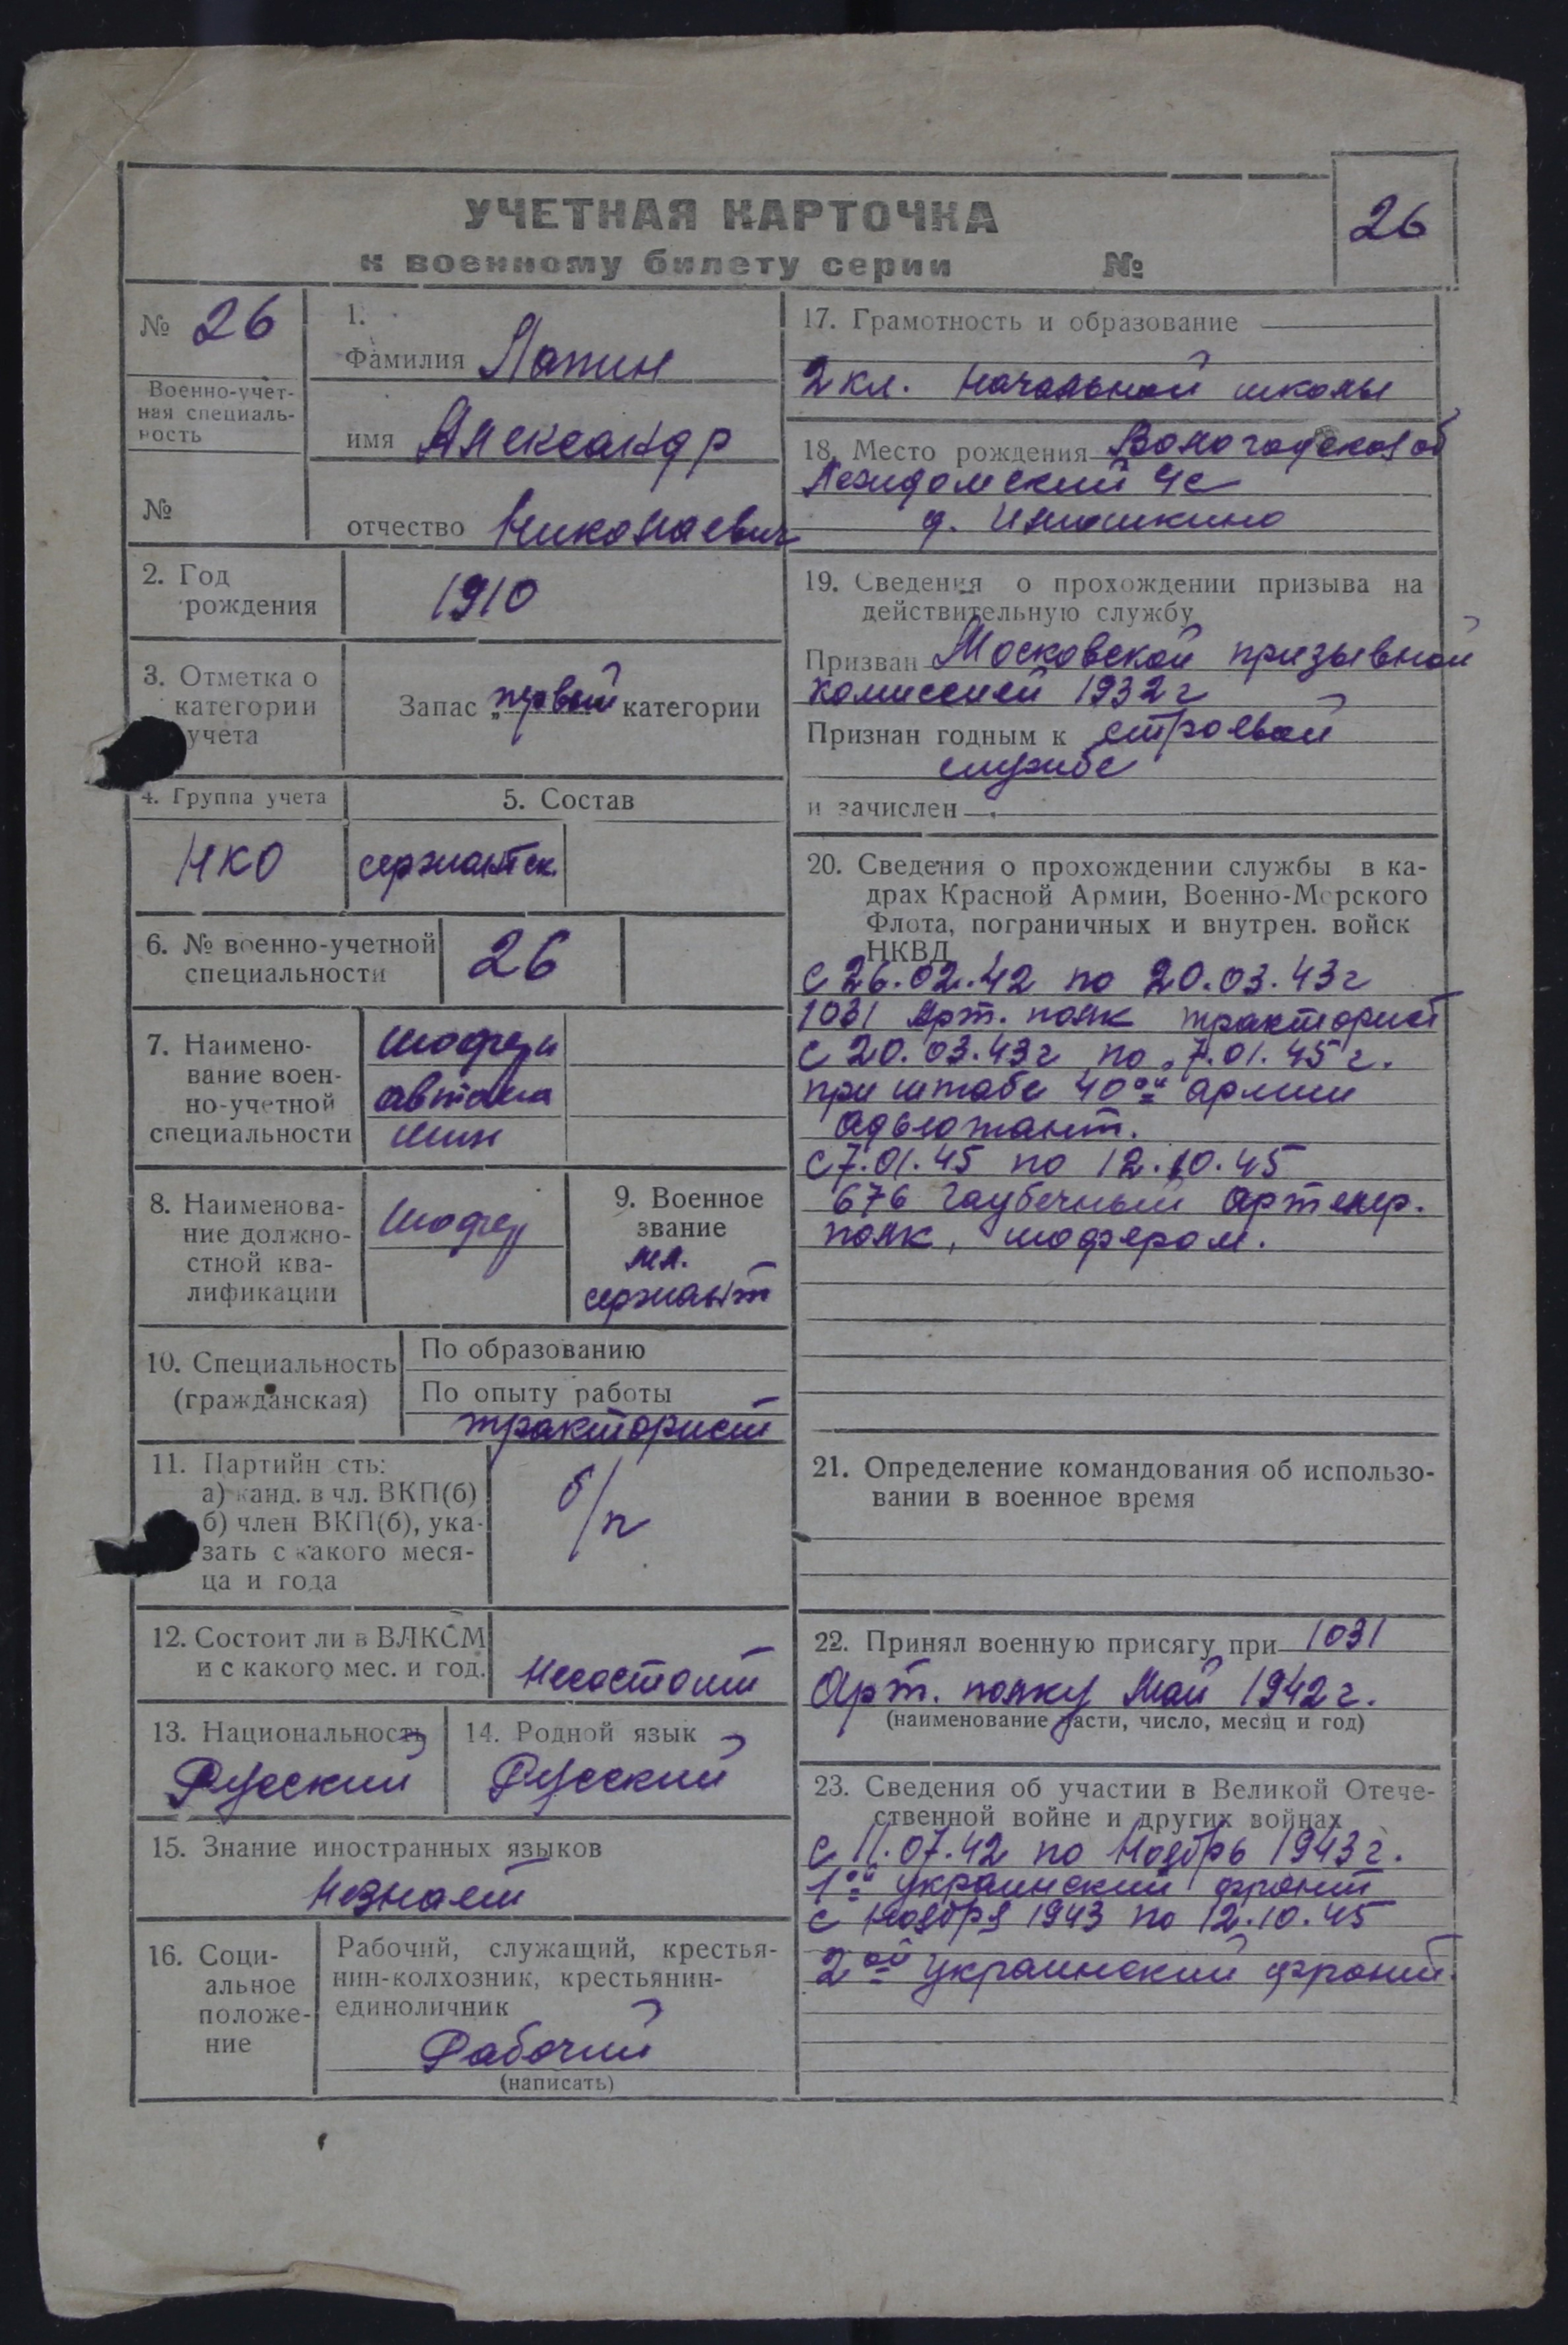 УЧЕТНАЯ КАРТОЧКА
к военному билету серии №
26
№ 26
Военно-учет-
ная специаль-
ность
№
1.
Фамилия Лапин
имя Александр
отчество Николаевич
2. Год
рождения
1910
3. Отметка о
категории
учета
Запас „первой категории
4. Группа учета
НКО
5. Состав
сержантск.
6. № военно-учетной
специальности
26
7. Наимено-
вание воен-
но-учетной
специальности
Шофера
автома
шин
8. Наименова-
ние должно-
стной ква-
лификации
Шофер
9. Военное
звание
мл.
сержант
10. Специальность
(гражданская)
По образованию
По опыту работы
тракторист
11. Партийн сть:
а) канд. в чл. ВКП(б)
б) член ВКП(б), ука-
зать с какого меся-
ца и года
б/п
12. Состоит ли в ВЛКСМ
и с какого мес. и год.
Несостоит
13. Национальность
Русский
14. Родной язык
Русский
15. Знание иностранных языков
Незнает
16. Соци-
альное
положе-
ние
Рабочий, служащий, крестья-
нин-колхозник, крестьянин-
единоличник
Рабочий
(написать)
17. Грамотность и образование
2 кл. Начальной школы
18. Место рождения Вологодская об
Лежидомский Чс
д.
19. Сведения о прохождении призыва на
действительную службу
Призван Московской призывной
комиссией 1932 г
Признан годным к строевой
службе
и зачислен
20. Сведения о прохождении службы в ка-
драх Красной Армии, Военно-Морского
Флота, пограничных и внутрен. войск
НКВД
с 26.02.42 по 20.03.43 г
1031 Арт. полк тракторист
с 20.03.43 г по 7.01.45 г.
при штабе 40ой армии
адьютант.
с 7.01.45 по 12.10.45
676 Гаубечный Артелер.
полк, шофером.
21. Определение командования об использо-
вании в военное время
22. Принял военную присягу при 1031
Арт. полку Май 1942 г.
(наименование части, число, месяц и год)
23. Сведения об участии в Великой Отече-
ственной войне и других войнах
с 11.07.42 по Ноябрь 1943 г.
1ой украинский фронт
с Ноября 1943 по 12.10.45
2ой Украинский фронт.